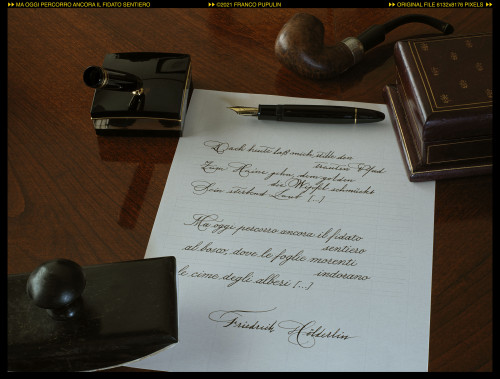 MA OGGI PERCORRO ANCORA IL FIDATO SENTIERO
©2021 FRANCO PUPULIN
ORIGINAL FILE 8132x8176 PIXELS
Doch heute laß mich, stille den
trauten Pfad
Zum Haine gehn, dem golden
die Wipfel schmückt
Sein sterbend Laub [...]
Ma oggi percorro ancora il fidato
sentiero
al bosco, dove le foglie morenti
indorano
le cime degli alberi [...]
Friedrich Hölderlin